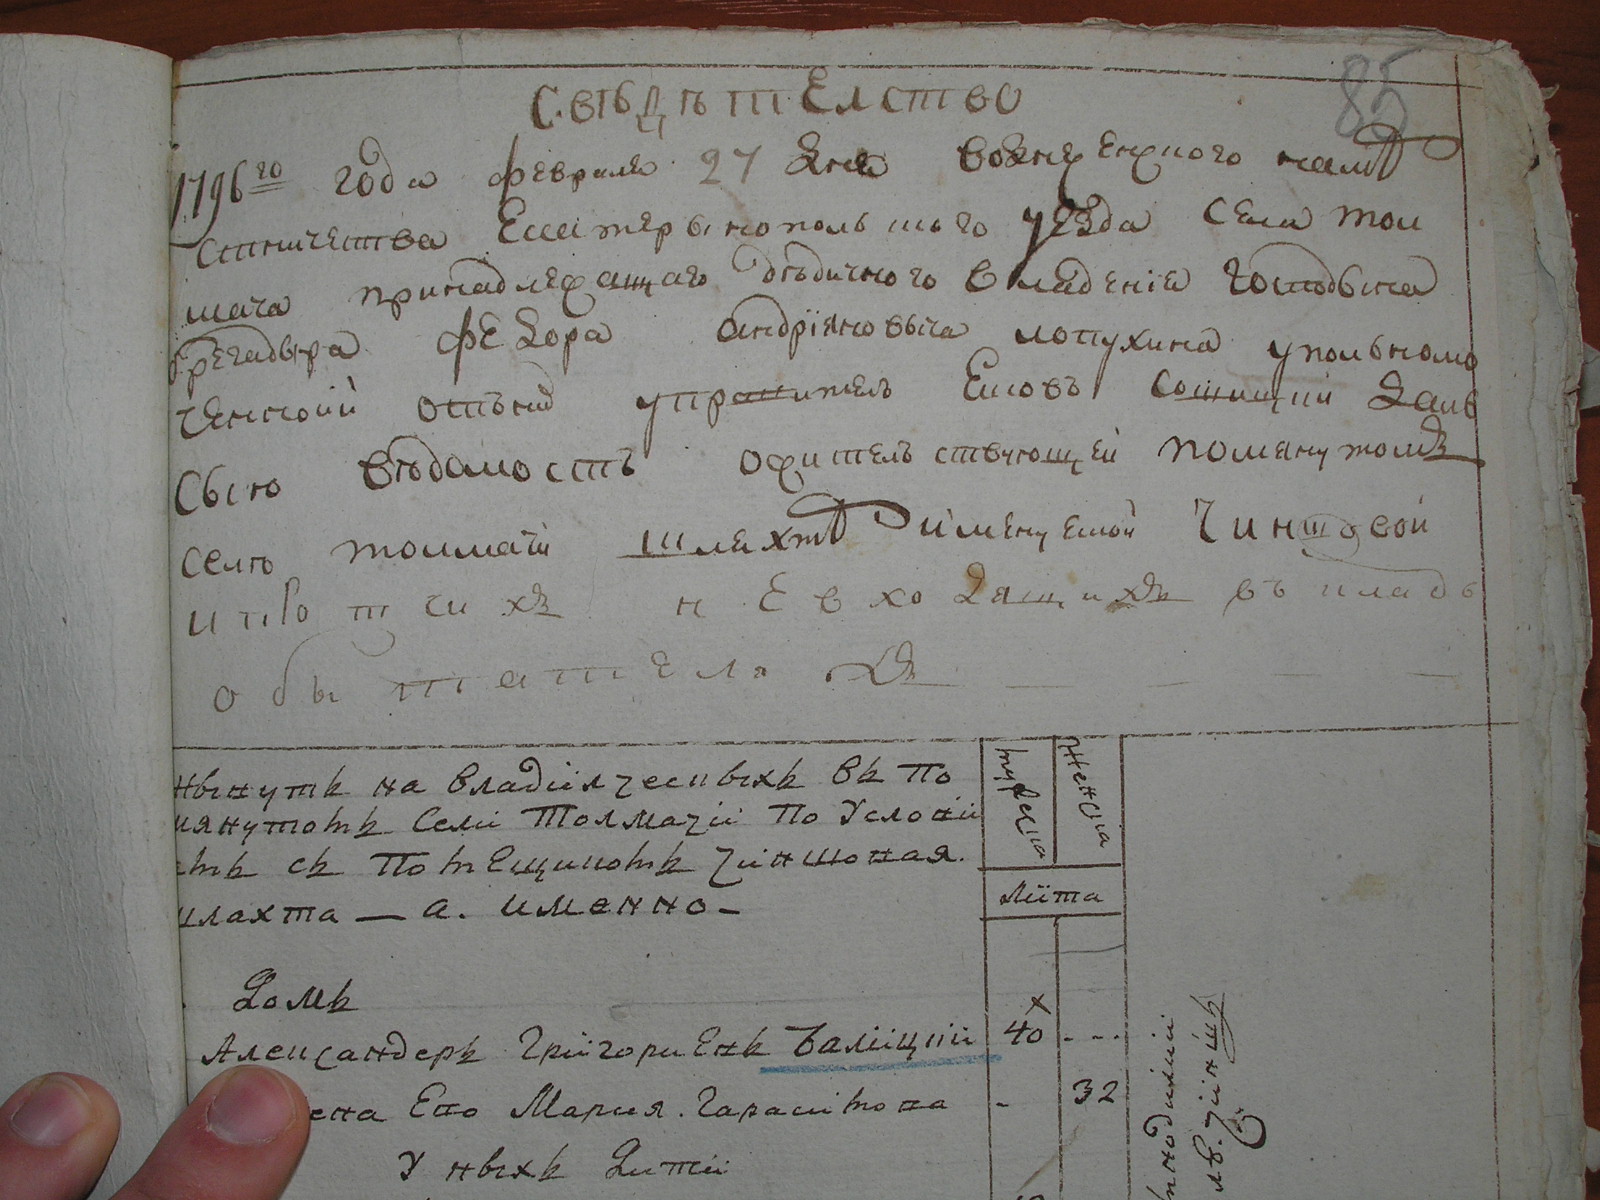 85
Свѣдѣтелство
1796го года февраля 27 дня вознеженского намѣ
стничества Екатерынопольского уезда села тол
мача принадлежащаго дѣдичного владения господина
брегадыра Федора андріяновыча лопухина упольномо
ченной отънд управитель Еновъ Сошицкий далъ
Сыю вѣдомость ожительствующей помянутомъ
селѣ толмачи шляхтѣ именуемой Чиншовой
и протчихъ невходящихъ въ кладъ
обытателяхъ
нынутъ на владиіяческыхъ въ по
мянутомъ Сели Толмачіи По Услові
емъ съ Помещикомъ Чіншовая
шлахта — а. именно —
мужеска
женска
Лiта
Домъ
Александеръ Грігориевъ Баліцкій 40
жена Его Мария Гарасимова - 32
У ныхъ Дити